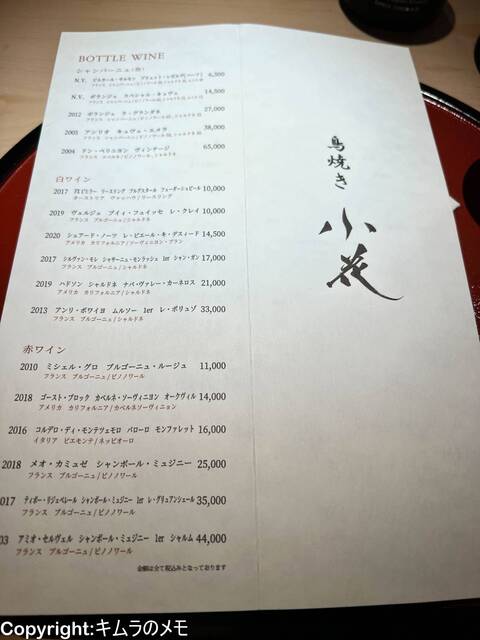 BOTTLE WINE
シャンパーニュ(泡)
N.V. ビルカール・サルモン ブリュット・レゼルヴ 6,500
N.V. ボランジェ スペシャル・キュヴェ 14,500
2012 ボランジェ ラ・グランダネ 27,000
2005 アンリオ キュヴェ・エメラ 38,000
2004 ドン・ペリニヨン ヴィンテージ 65,000
フランス シャンパーニュ/ピノノワール、シャルドネ
白ワイン
2017 リースリング フェーダーシュピール 10,000
オーストリア ヴァッハウ/リースリング
2019 ヴェルジェ プイィ・フュイッセ レ・クレイ 10,000
フランス ブルゴーニュ/シャルドネ
2020 シュアード・ノーツ レ・ピエール・キ・デスィード 14,500
アメリカ カリフォルニア/ソーヴィニヨン・ブラン
2017 シルヴァン・モレ シャサーニュ・モンラッシュ 1er シャン・ガン 17,000
フランス ブルゴーニュ/シャルドネ
2019 ハドソン シャルドネ ナパ・ヴァレー・カーネロス 21,000
アメリカ カリフォルニア/シャルドネ
2013 アンリ・ボワイヨ ムルソー 1er レ・ポリュゾ 33,000
フランス ブルゴーニュ/シャルドネ
赤ワイン
2010 ミシェル・グロ ブルゴーニュ・ルージュ 11,000
フランス ブルゴーニュ/ピノノワール
2018 ゴースト・ブロック カベルネ・ソーヴィニヨン オークヴィル 14,000
アメリカ カリフォルニア/カベルネソーヴィニョン
2016 コルデロ・ディ・モンテツェモロ バローロ モンファレット 16,000
イタリア ピエモンテ/ネッビオーロ
2018 メオ・カミュゼ シャンボール・ミュジニー 25,000
フランス ブルゴーニュ/ピノノワール
017 ティボー・リジェベレール シャンボール・ミュジニー 1er レ・グリュアンシェール 35,000
フランス ブルゴーニュ/ピノノワール
03 アミオ・セルヴェル シャンボール・ミュジニー 1er シャルム 44,000
フランス ブルゴーニュ/ピノノワール
金額は全て税込みとなっております
鳥焼き
小花
Copyright:キムラのメモ